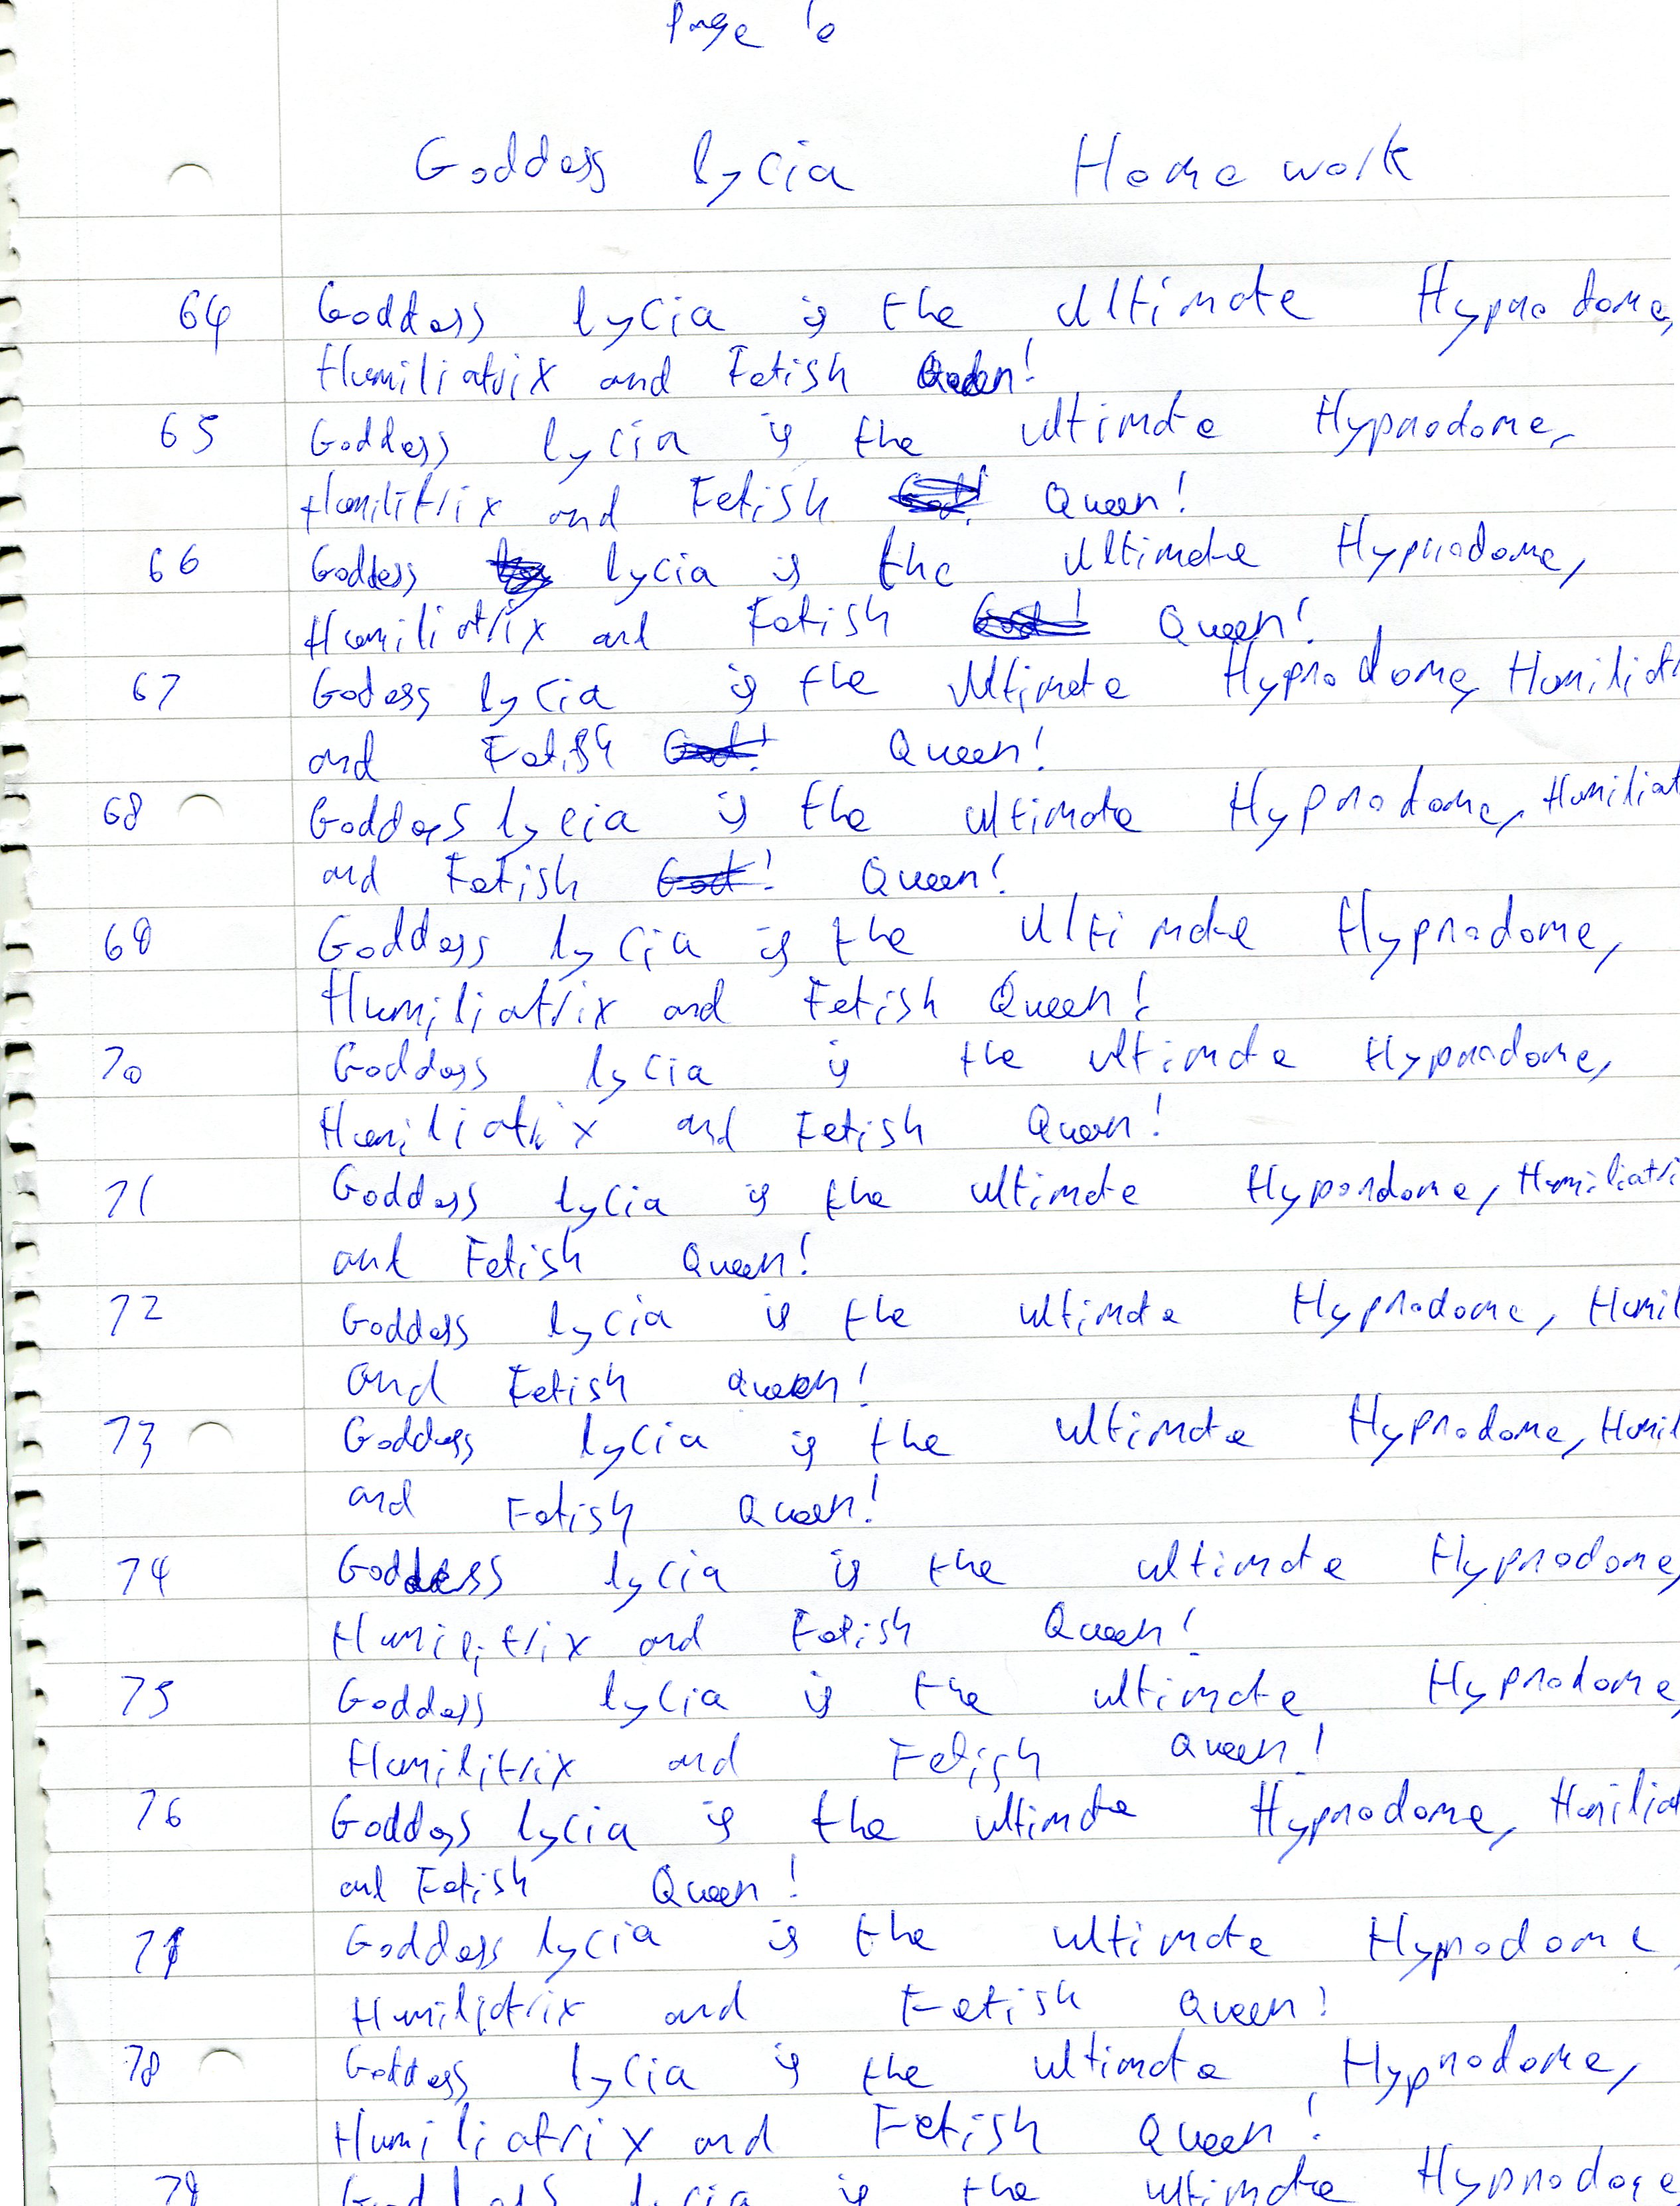 Page 6
Goddess lycia Homework
64 Goddess lycia is the ultimate Hypnodome,
Humiliatrix and Fetish Queen!
65 Goddess lycia is the ultimate Hypnodome,
Humilitrix and Fetish God! Queen!
66 Goddess lycia is the ultimate Hypnodome,
Humiliatrix and Fetish God! Queen!
67 Godess lycia is the ultimate Hypnodome, Humiliat
and Fetish God! Queen!
68 Goddess lycia is the ultimate Hypnodome, Humiliat
and Fetish God! Queen!
69 Goddess lycia is the ultimate Hypnodome,
Humiliatrix and Fetish Queen!
70 Goddess lycia is the ultimate Hypnodome,
Humiliatrix and Fetish Queen!
71 Goddess lycia is the ultimate Hypondome, Humiliatri
and Fetish Queen!
72 Goddess lycia is the ultimate Hypnodome, Humil
and Fetish Queen!
73 Goddess lycia is the ultimate Hypnodome, Humil
and Fetish Queen!
74 Goddess lycia is the ultimate Hypnodome,
Humilitrix and Fetish Queen!
75 Goddess lycia is the ultimate Hypnodome,
Humilitrix and Fetish Queen!
76 Goddess lycia is the ultimate Hypnodome, Humiliat
and Fetish Queen!
77 Goddess lycia is the ultimate Hypnodome
Humiliatrix and Fetish Queen!
78 Goddess lycia is the ultimate Hypnodome,
Humiliatrix and Fetish Queen!
79 Goddess lycia is the ultimate Hypnodome